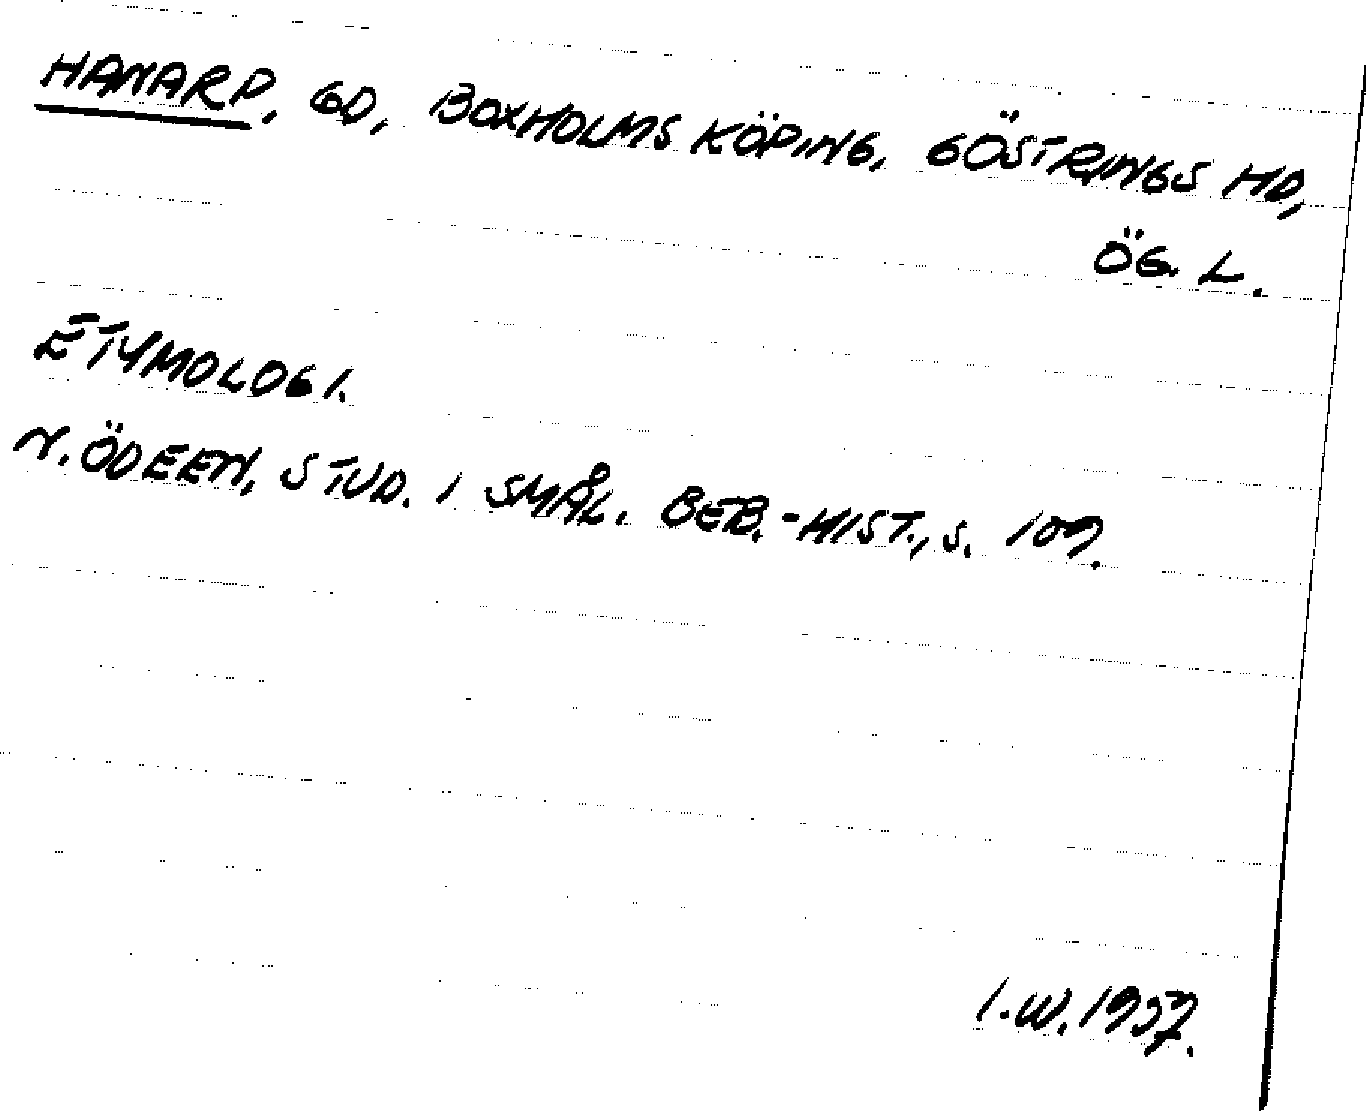 HAMARP, GD, BOXHOLMS KÖPING, GÖSTRINGS HD,
ÖG. L.
ETYMOLOGI.
N. ÖDEEN, STUD. I SMÅL. BEB.-HIST., S. 109.
I.W. 1937.